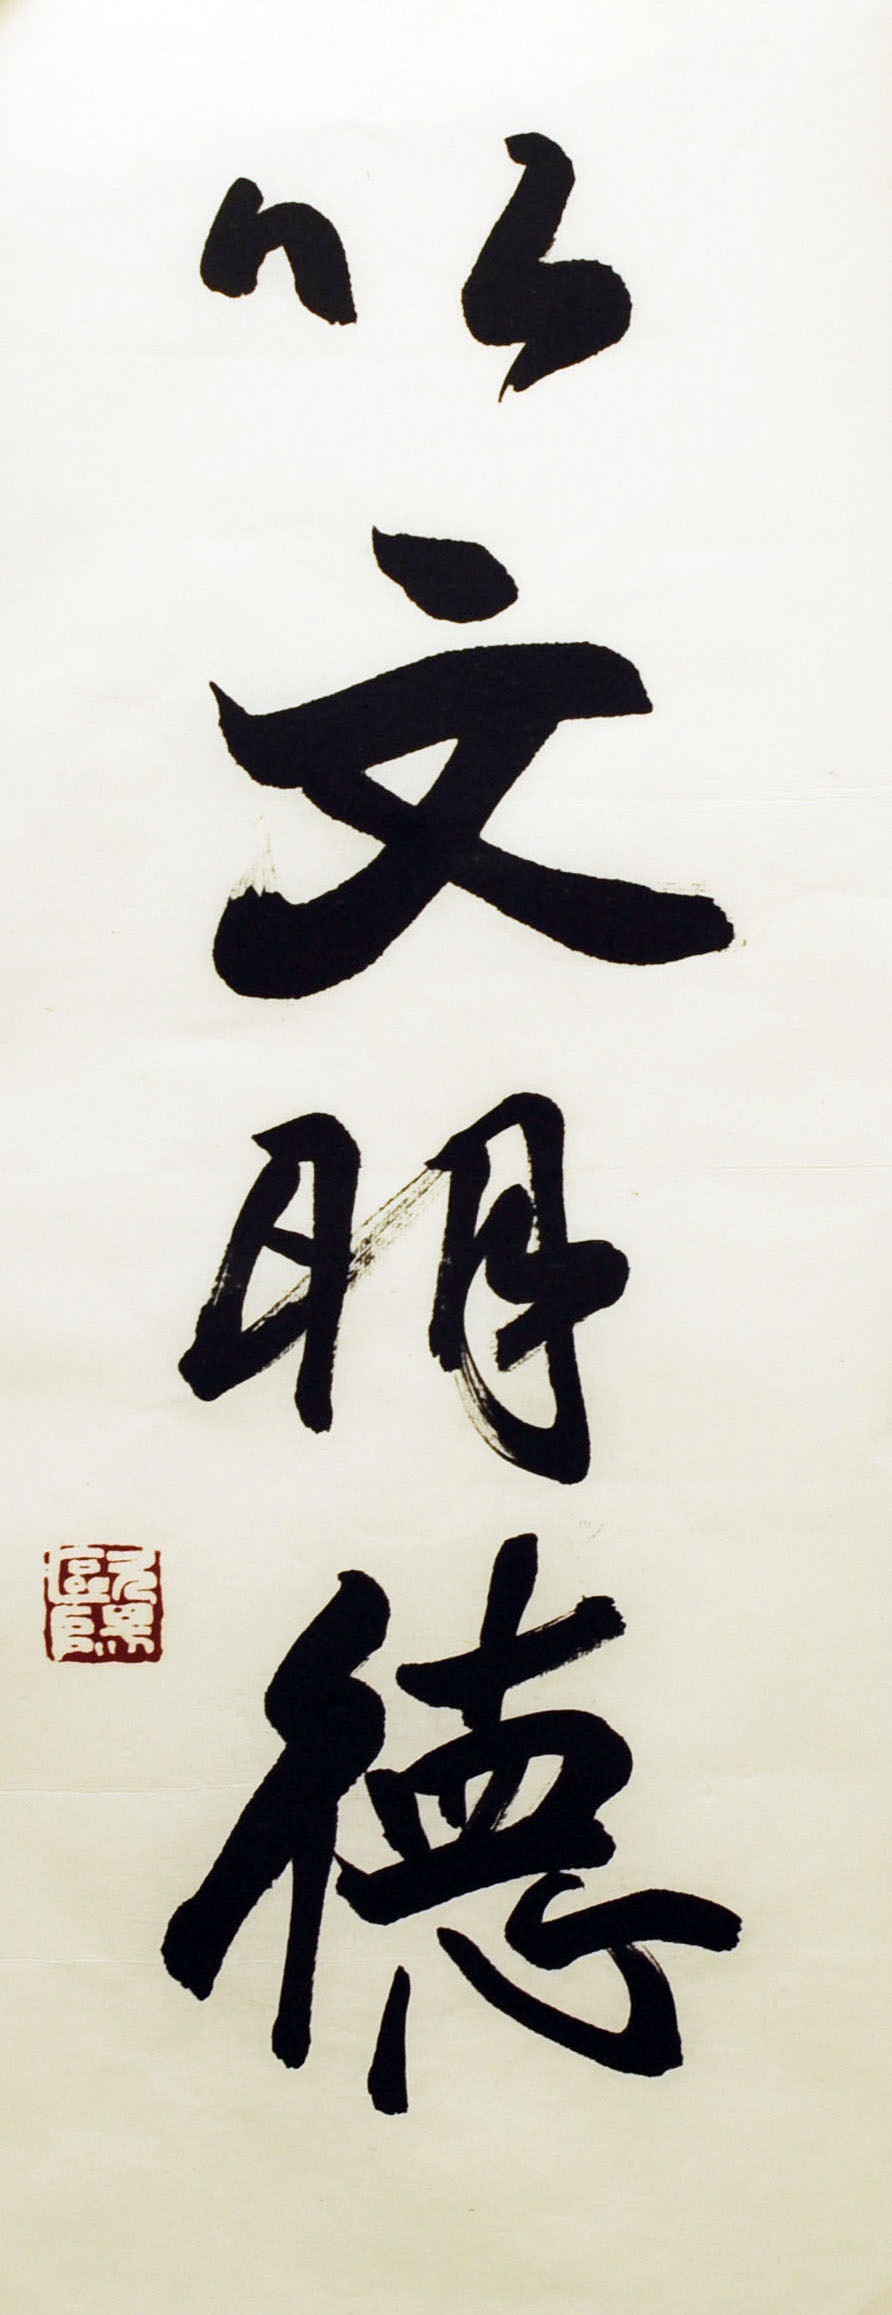 以文明德